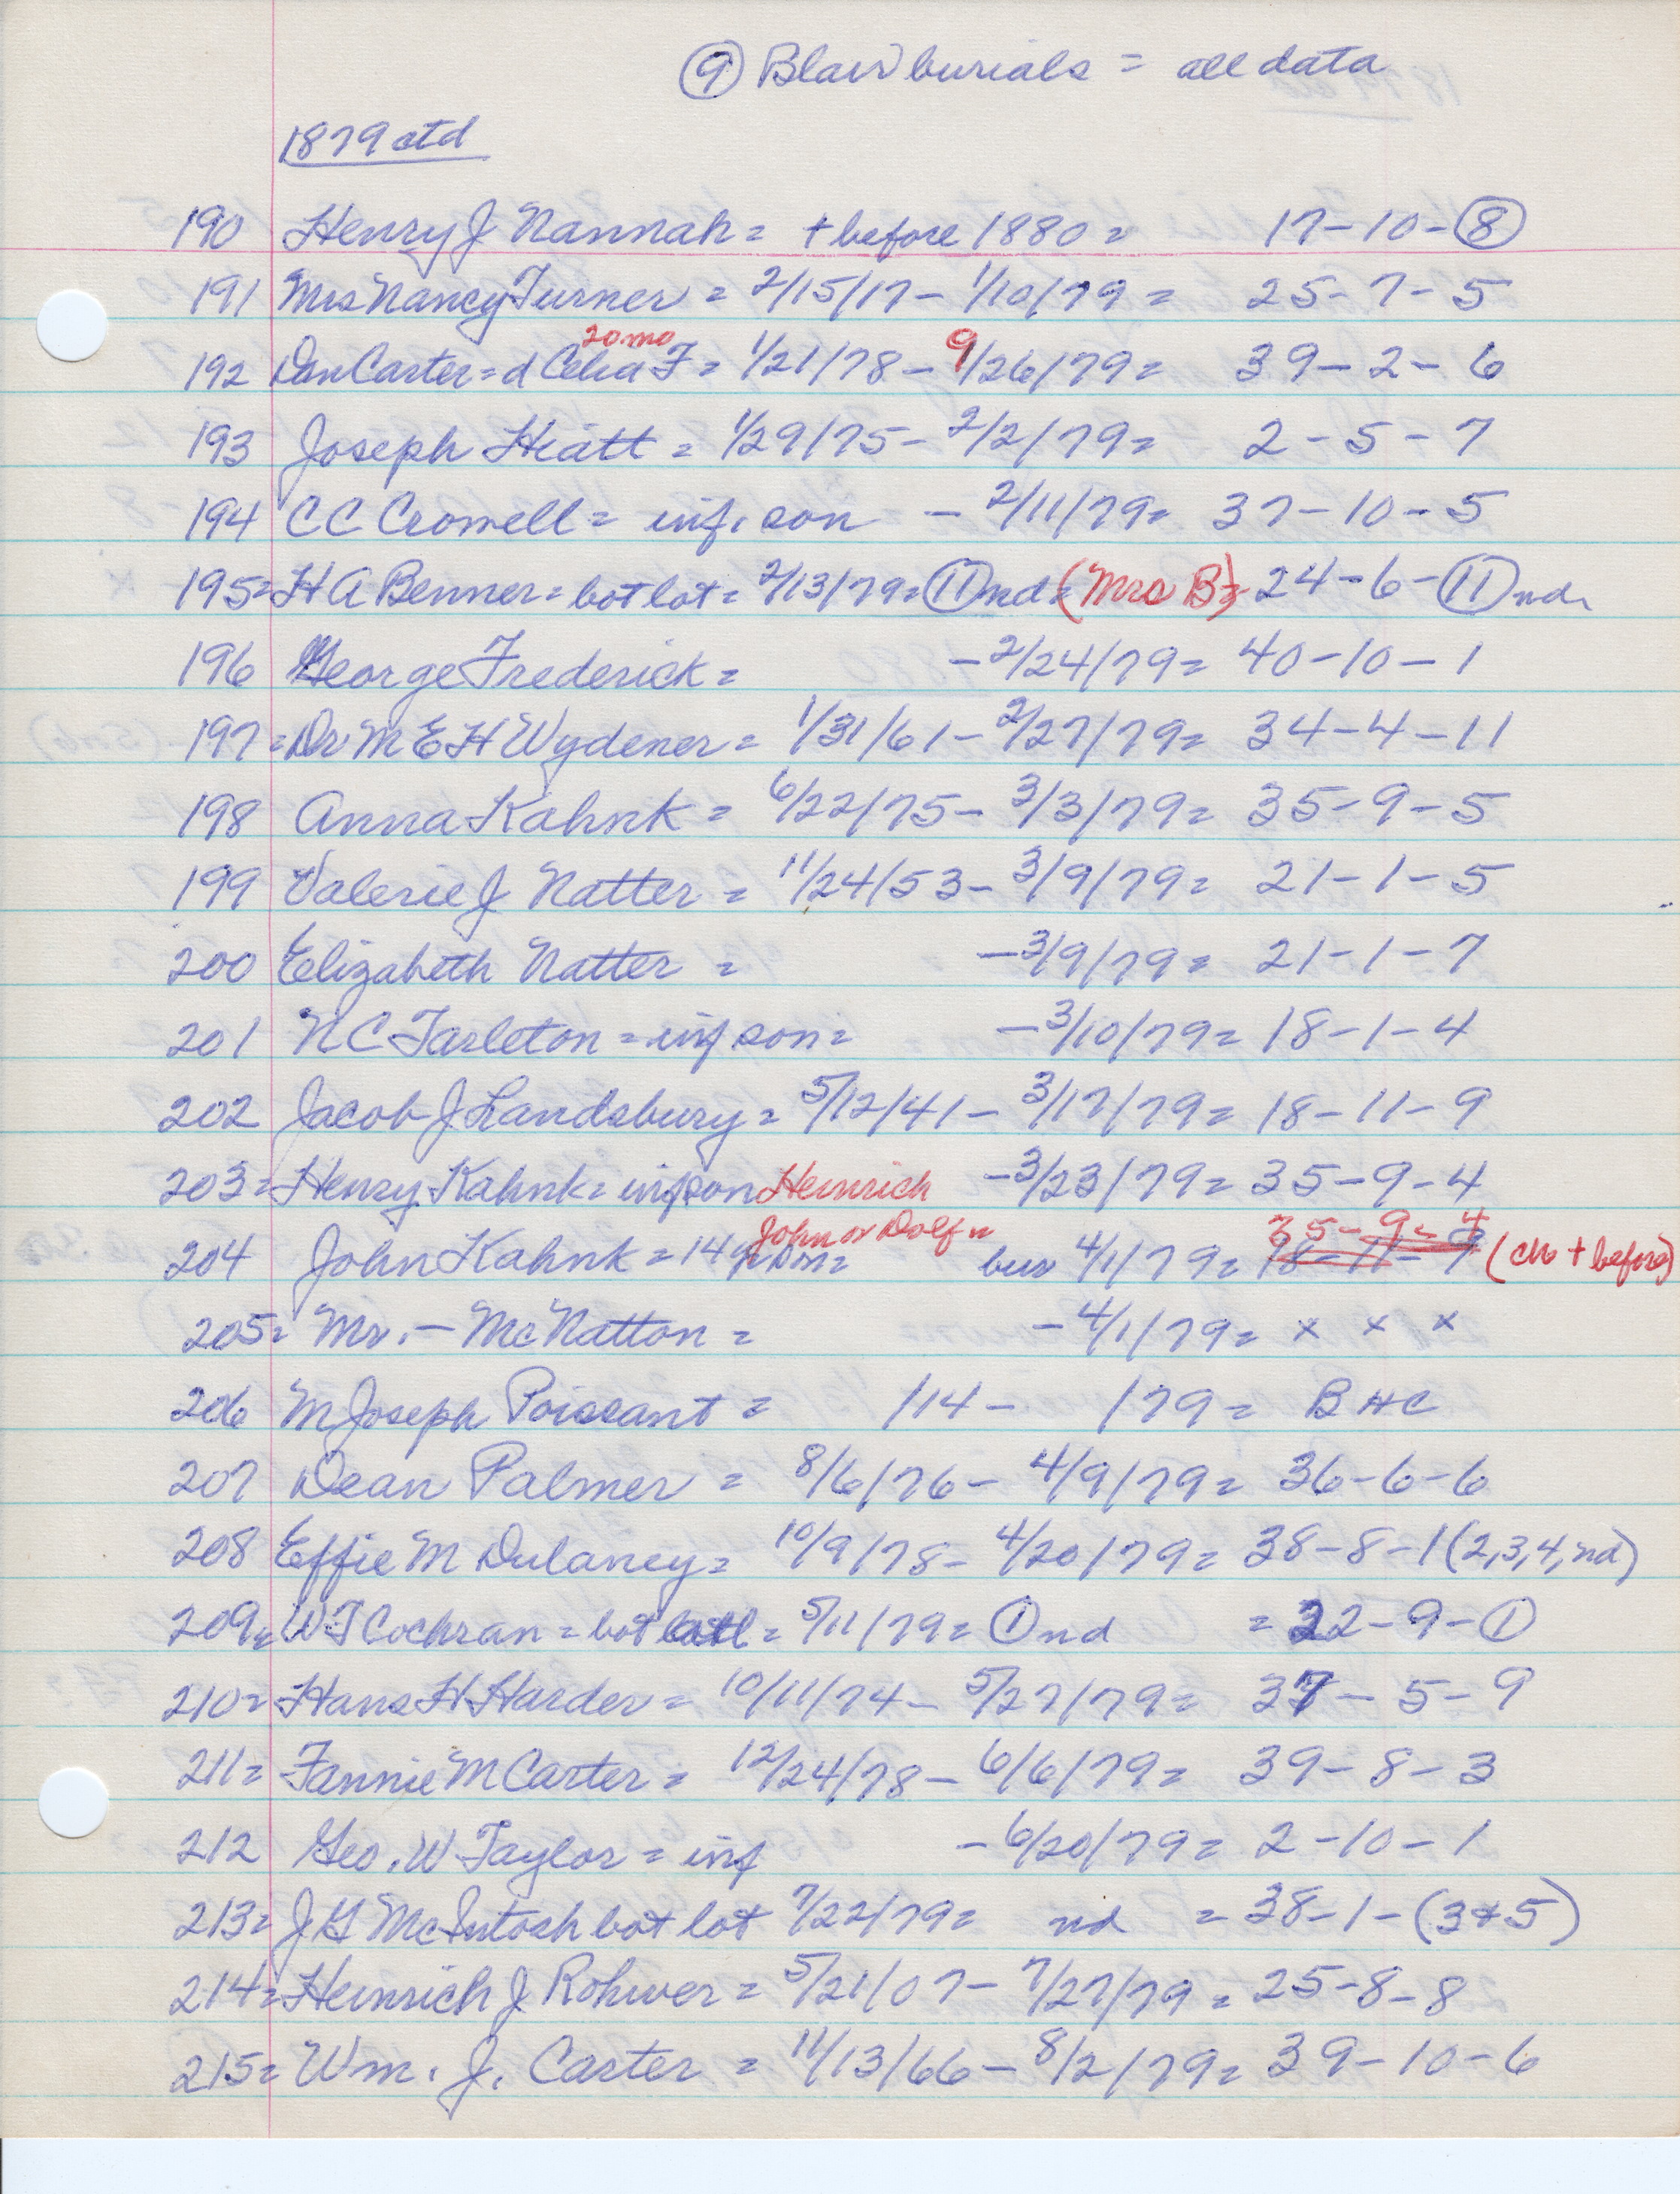 ⑨ Blair burials = all data
1879 ctd
190 Henry J Nannah = + before 1880 = 17-10-⑧
191 Mrs Nancy Turner = 2/15/17 - 1/10/79 = 25-7-5
20 mo
192 Dan Carter = d Celia F = 1/21/78 - 9/26/79 = 39-2-6
193 Joseph Hiatt = 1/29/75 - 2/2/79 = 2-5-7
194 CC Crowell = inf. son - 2/11/79 = 37-10-5
195 = H A Benner = bot lot = 2/13/79 = ⑪ nd = (Mrs B) = 24-6-⑪ nd
196 George Frederick = - 2/24/79 = 40-10-1
197 = Dr M E H Wydener = 1/31/61 - 2/27/79 = 34-4-11
198 Anna Kahnk = 6/22/75 - 3/3/79 = 35-9-5
199 Valerie J Natter = 11/24/53 - 3/9/79 = 21-1-5
200 Elizabeth Natter = - 3/9/79 = 21-1-7
201 N C Tarleton = inf son = - 3/10/79 = 18-1-4
202 Jacob J Landsbury = 5/12/41 - 3/17/79 = 18-11-9
203 = Henry Kahnk = inf son Heinrich - 3/23/79 = 35-9-4
John or Dolf = 35-9-4
204 John Kahnk = 14 yr son = bur 4/1/79 = 18-11-9 (ch + before)
205 = Mr. - McNatton = - 4/1/79 = x x x
206 M Joseph Poissant = /14 - /79 = B HC
207 Dean Palmer = 8/6/76 - 4/9/79 = 36-6-6
208 Effie M Dulaney = 10/9/78 - 4/20/79 = 38-8-1 (2,3,4, nd)
209 = W T Cochran = bot lot = 5/11/79 = ① nd = 22-9-①
210 = Hans H Harder = 10/11/74 - 5/27/79 = 37-5-9
211 = Fannie M Carter = 12/24/78 - 6/6/79 = 39-8-3
212 Geo. W Taylor = inf - 6/20/79 = 2-10-1
213 = J G McIntosh bot lot 7/22/79 = nd = 38-1-(3+5)
214 = Heinrich J Rohwer = 5/21/07 - 7/27/79 = 25-8-8
215 = Wm. J. Carter = 11/13/66 - 8/2/79 = 39-10-6